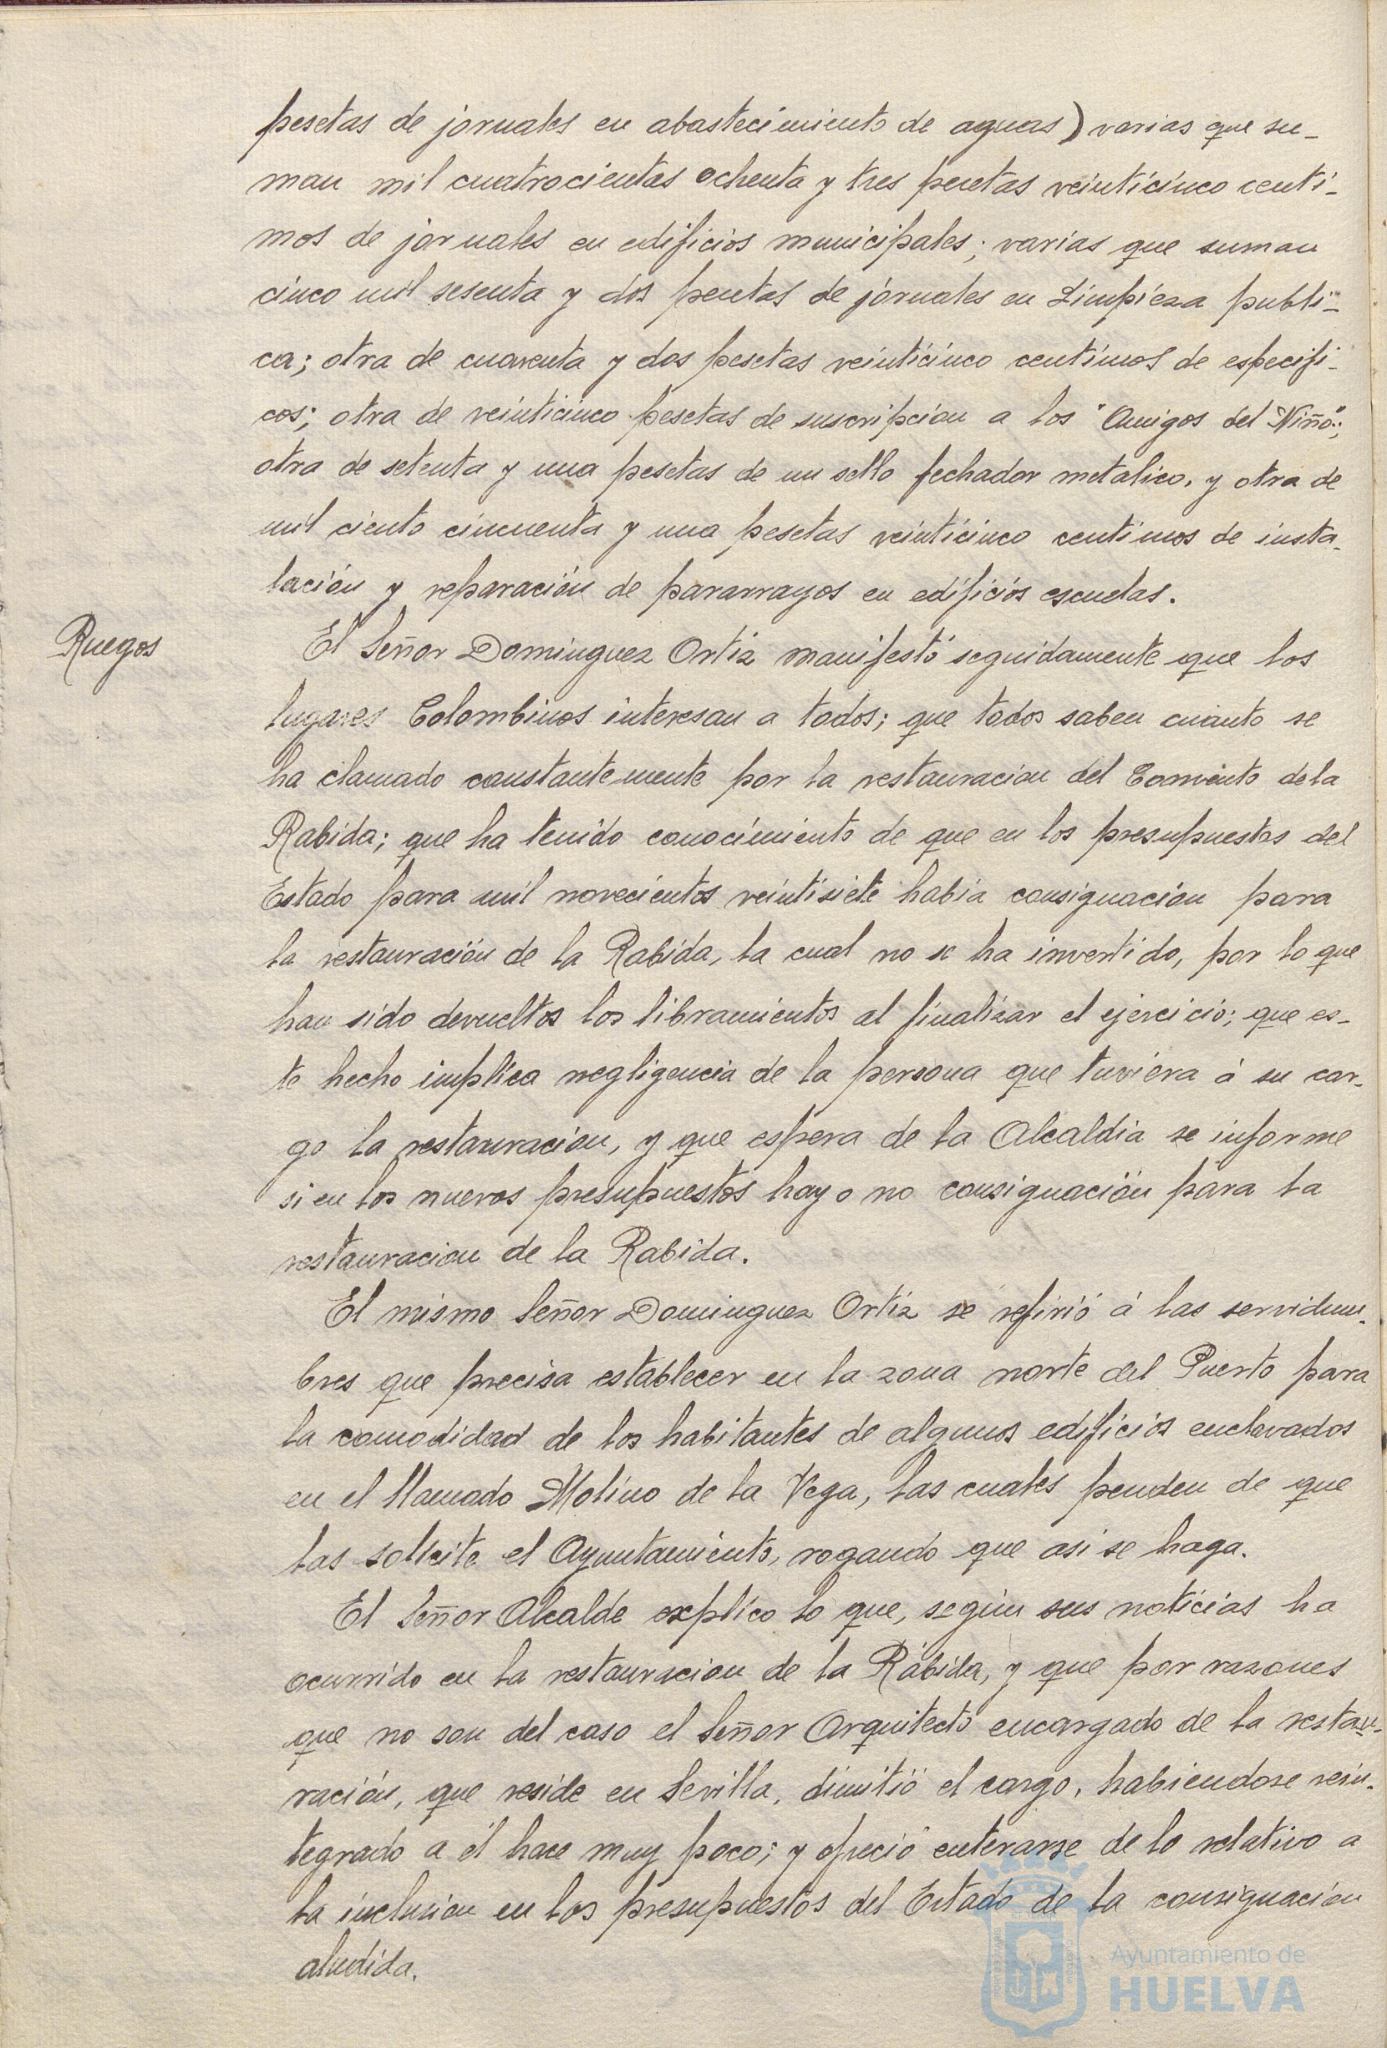 pesetas de jornales en abastecimiento de aguas) varias que su-
man mil cuatrocientas ochenta y tres pesetas veinticinco centi-
mos de jornales en edificios municipales; varias que suman
cinco mil sesenta y dos pesetas de jornales en Limpieza publi-
ca; otra de cuarenta y dos pesetas veinticinco centimos de especifi-
cos; otra de veinticinco pesetas de suscripcion a los "Amigos del Niño";
otra de setenta y una pesetas de un sello fechador metalico, y otra de
mil ciento cincuenta y una pesetas veinticinco centimos de insta-
lación y reparación de pararrayos en edificios escuelas.
Ruegos
El Señor Dominguez Ortiz manifestó seguidamente que los
lugares Colombinos interesan a todos; que todos saben cuanto se
ha clamado constantemente por la restauracion del Convento de la
Rabida; que ha tenido conocimiento de que en los presupuestos del
Estado para mil novecientos veintisiete habia consignacion para
la restauración de la Rabida, la cual no se ha invertido, por lo que
han sido devueltos los libramientos al finalizar el ejercicio; que es-
te hecho implica negligencia de la persona que tuviera á su car-
go la restauracion, y que espera de la Alcaldia se informe
si en los nuevos presupuestos hay o no consignación para la
restauracion de la Rabida.
El mismo Señor Dominguez Ortiz se refirió á las servidum-
bres que precisa establecer en la zona norte del Puerto para
la comodidad de los habitantes de algunos edificios enclavados
en el llamado Molino de la Vega, las cuales penden de que
las solicite el Ayuntamiento, rogando que asi se haga.
El Señor Alcalde explico lo que, según sus noticias ha
ocurrido en la restauracion de la Rábida, y que por razones
que no son del caso el Señor Arquitecto encargado de la restau-
ración, que reside en Sevilla, dimitió el cargo, habiendose rein-
tegrado a él hace muy poco; y ofreció enterarse de lo relativo a
la inclusion en los presupuestos del Estado de la consignacion
aludida.
Ayuntamiento de
HUELVA